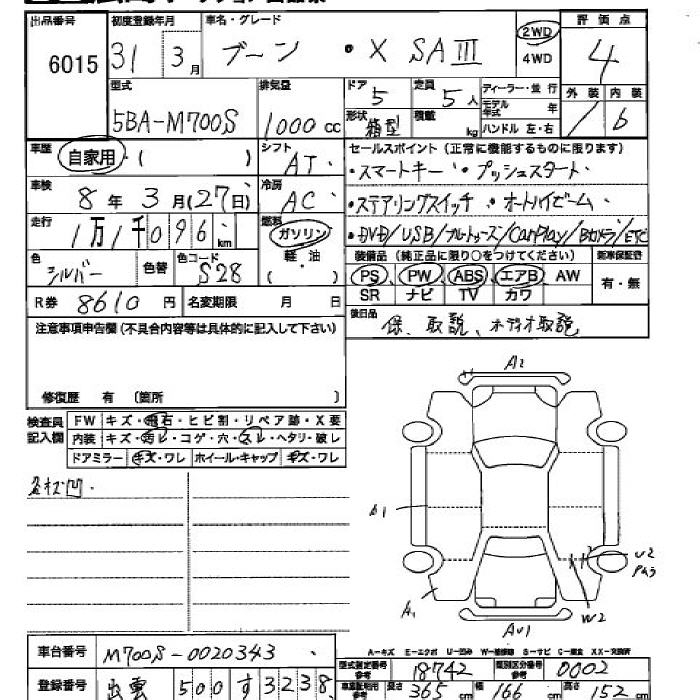 出品番号 初度登録年月 車名・グレード 評価点
6015 31 3月 ブーン ・X SAⅢ 2WD 4WD 4
型式 排気量 ドア 定員 ディーラー・並行 外装 内装
5BA-M700S 1000cc 5 5人 モデル年式 年
形状 箱型 積載 kg ハンドル 左・右 6
車歴 自家用・( ) シフト AT セールスポイント(正常に機能するものに限ります)
・スマートキー・プッシュスタート
車検 8年3月(27日) 冷房 AC
・ステアリングスイッチ ・オートハイビーム
走行 1万1千096km 燃料 ガソリン 軽油 ( )
・DVD/USB/ブルートゥース/CarPlay/Bカメラ/ETC
色 シルバー 色替 色コード S28
装備品(純正品に限り○をつけてください) 新車保証書
PS PW ABS エアB AW 有・無
SR ナビ TV カワ
R券 8610円 名変期限 月 日
後日品 保、取説、オーディオ取説
注意事項申告欄(不具合内容等は具体的に記入して下さい)
修復歴 有 (箇所 )
検査員記入欄 FW キズ・飛石・ヒビ割・リペア跡・X要
内装 キズ・汚レ・コゲ・穴・スレ・ヘタリ・破レ
ドアミラー キズ・ワレ ホイール・キャップ キズ・ワレ
A2
A1
U2
W2
A1
AU1
車台番号 M700S-0020343
A-キズ E-エクボ U-凹み
型式指定番号 参考 18742 類別区分番号 参考 0002
登録番号 出雲 500 す 3238
長さ 365cm 幅 166cm 高さ 152cm